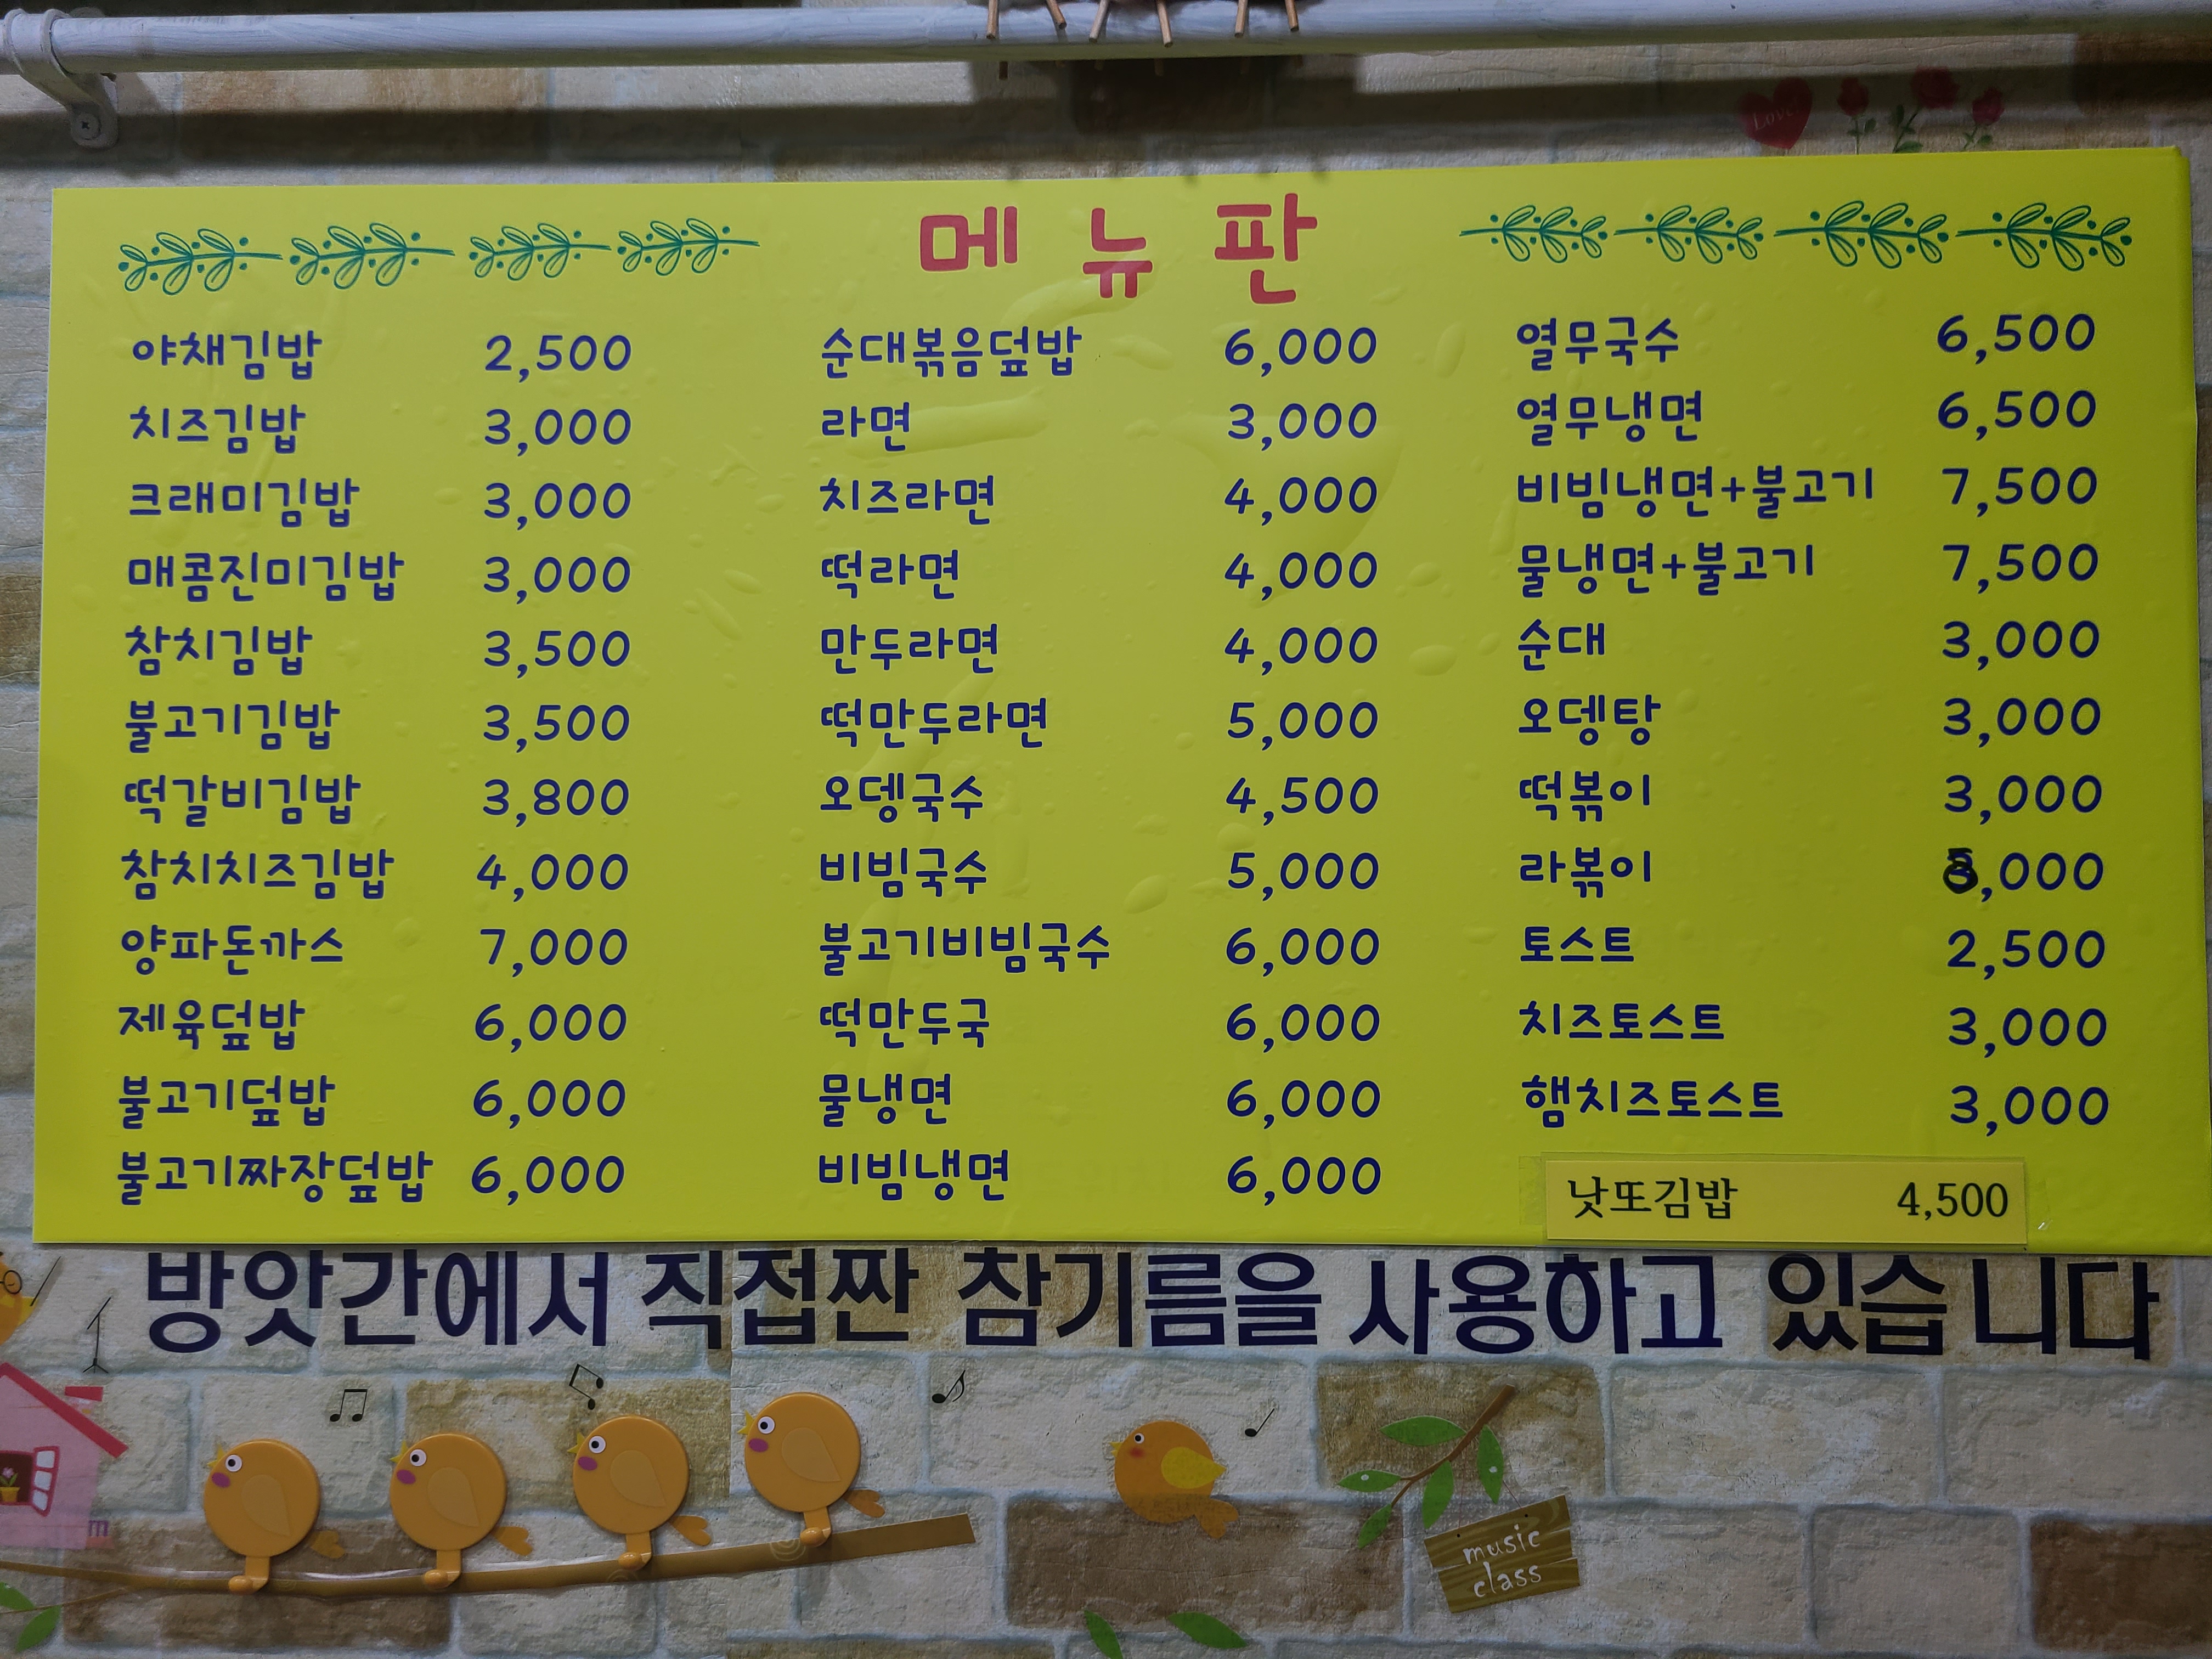 Love!
메뉴판
야채김밥 2,500
치즈김밥 3,000
크래미김밥 3,000
매콤진미김밥 3,000
참치김밥 3,500
불고기김밥 3,500
떡갈비김밥 3,800
참치치즈김밥 4,000
양파돈까스 7,000
제육덮밥 6,000
불고기덮밥 6,000
불고기짜장덮밥 6,000
순대볶음덮밥 6,000
라면 3,000
치즈라면 4,000
떡라면 4,000
만두라면 4,000
떡만두라면 5,000
오뎅국수 4,500
비빔국수 5,000
불고기비빔국수 6,000
떡만두국 6,000
물냉면 6,000
비빔냉면 6,000
열무국수 6,500
열무냉면 6,500
비빔냉면+불고기 7,500
물냉면+불고기 7,500
순대 3,000
오뎅탕 3,000
떡볶이 3,000
라볶이
토스트 2,500
치즈토스트 3,000
햄치즈토스트 3,000
낫또김밥 4,500
방앗간에서 직접짠 참기름을 사용하고 있습니다
music
class